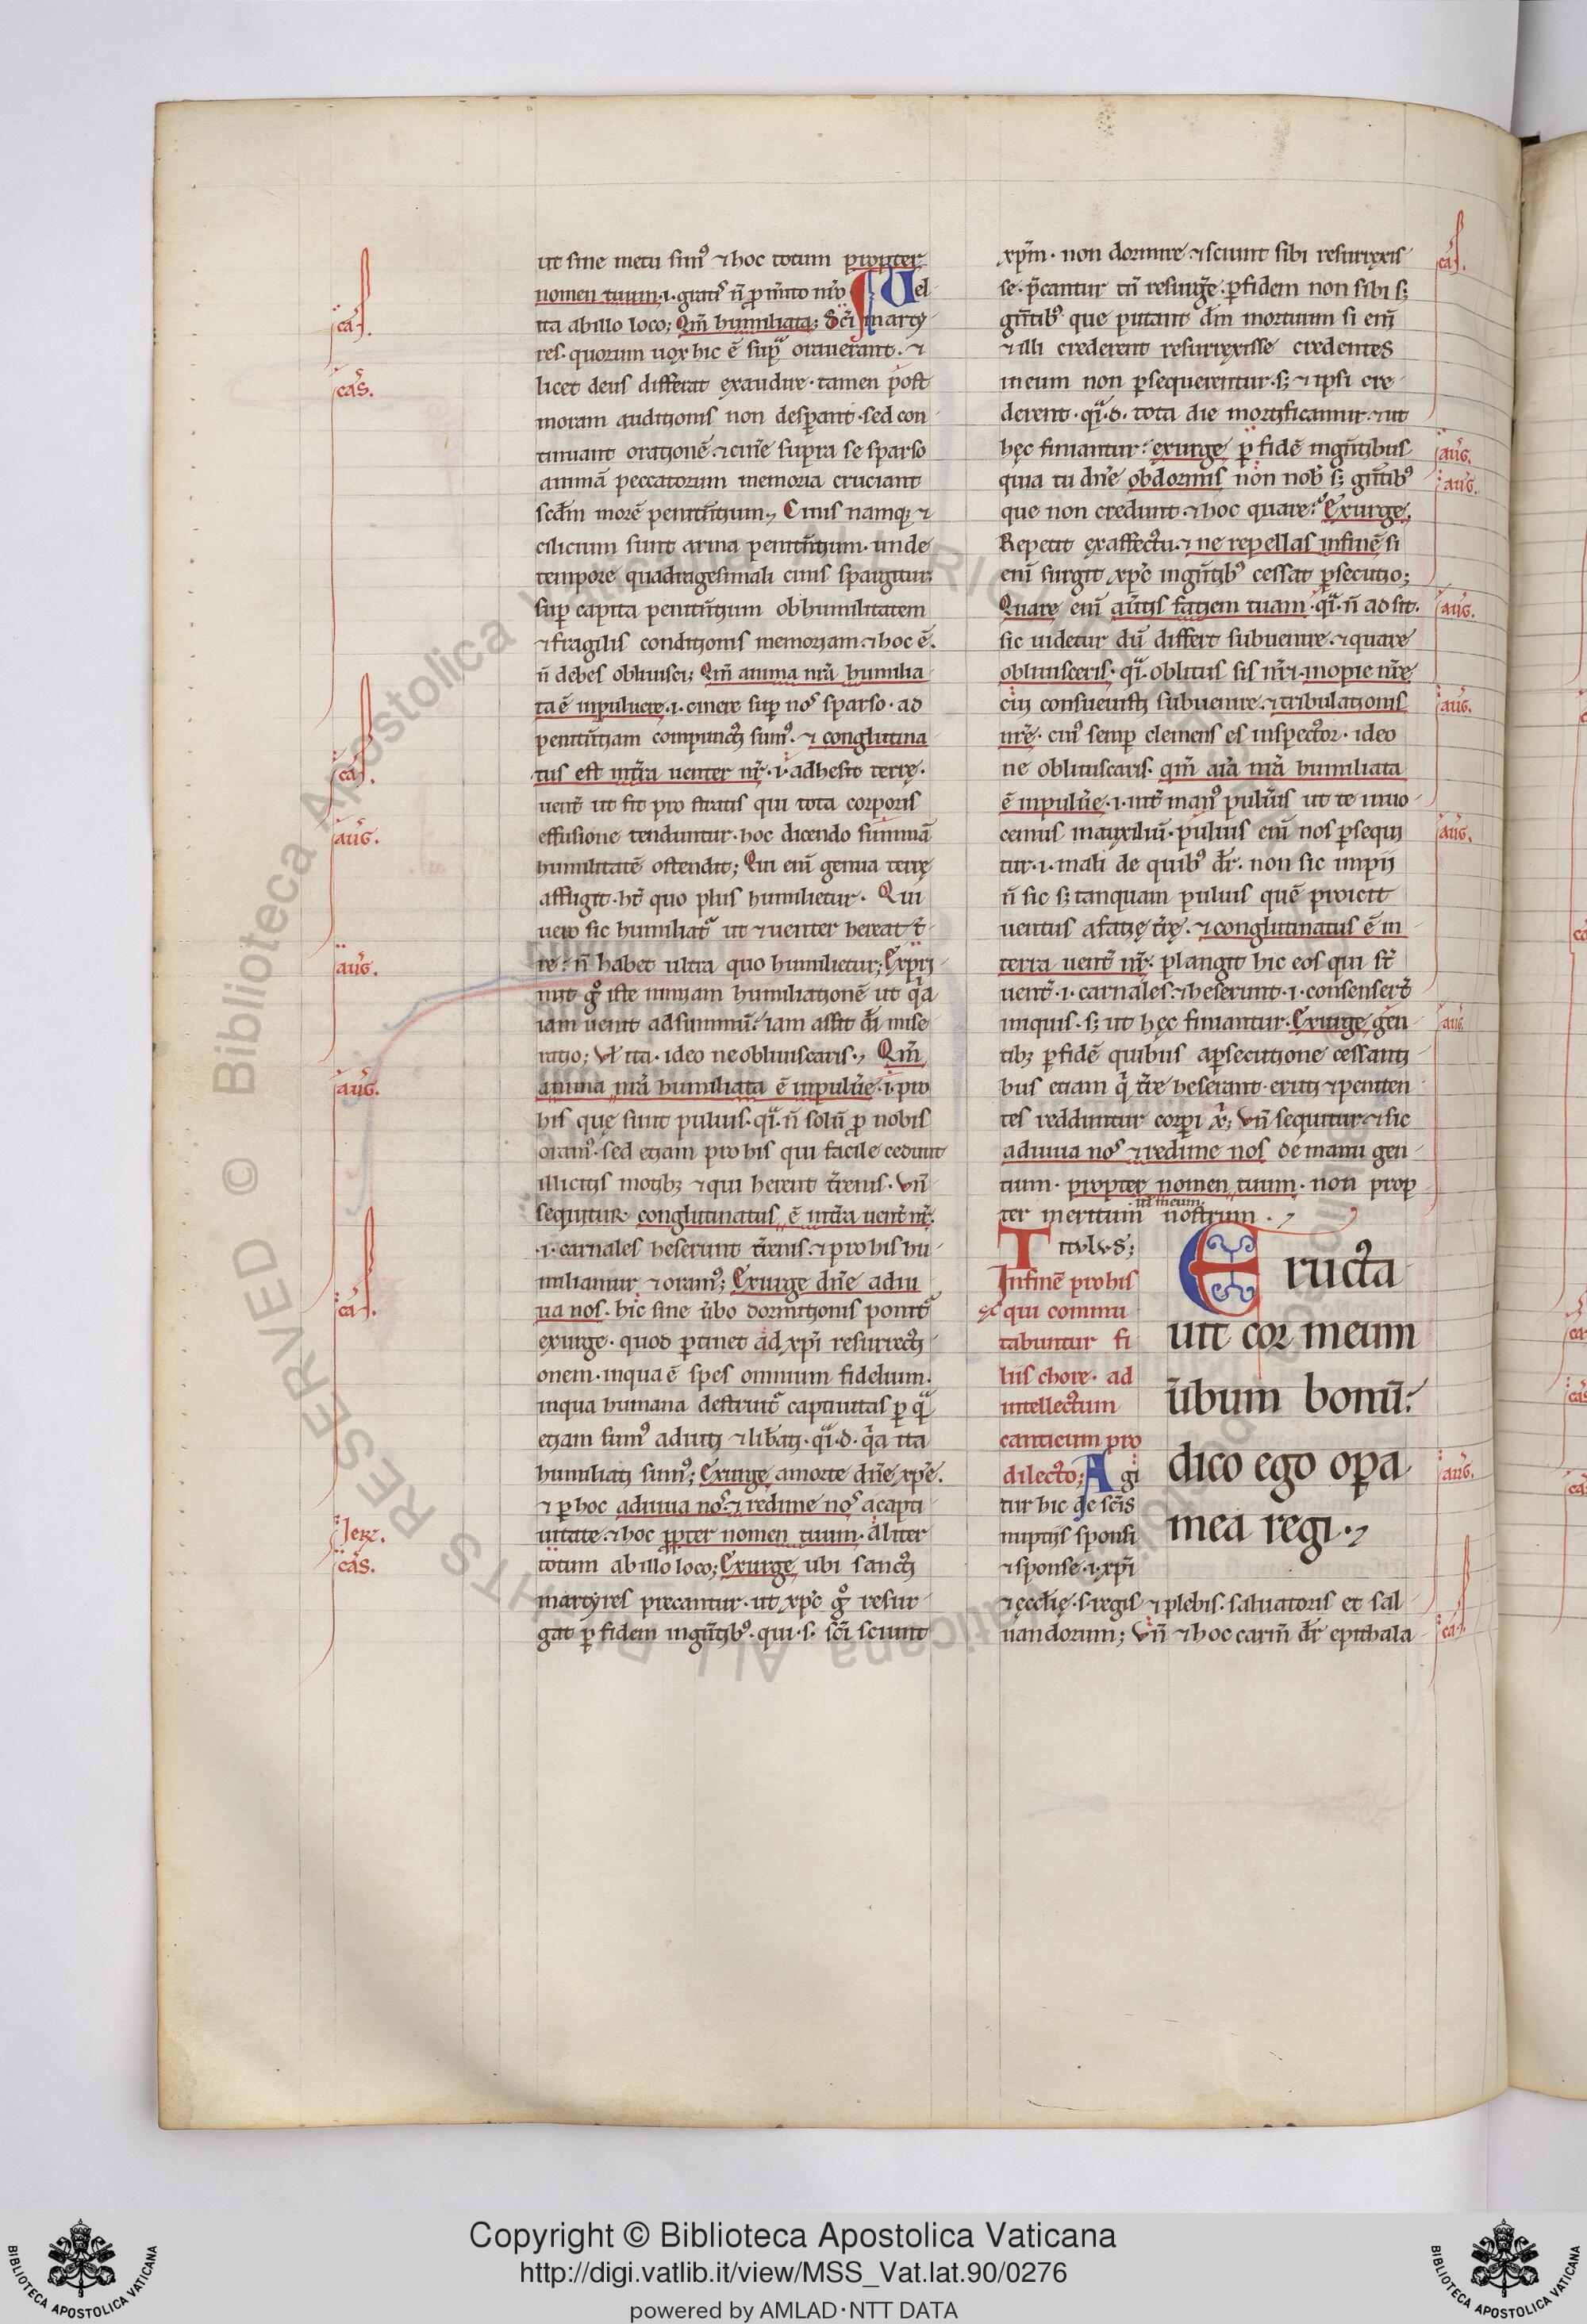 ut sine metu simꝰ ⁊ hoc totum propter
nomen tuum .i. gratis n̄ p̱ m̄ito nr̄o Vel
ita ab illo loco; Qm̄ humiliata; Sc̄i marty
res. quorum uox hic ē supͣ orauerant. ⁊
licet deus differat exaudire. tamen post
moram auditionis non desꝑant. sed con
tinuant orationē. ⁊ cin̄e supra se sparso
animā peccatorum memoria cruciant
scd̄m morē penitn̄tium., Cinis namq; ⁊
cilicium sunt arma penitn̄tium. unde
tempore quadragesimali cinis spargitur
suꝑ capita penitn̄tium ob humilitatem
⁊ fragilis conditionis memoriam. ⁊ hoc ē.
n̄ debes obliuisci; Qm̄ anima nr̄a humilia
ta ē in puluere .i. cinere suꝑ nos sparso. ad
penitn̄tiam compuncti sumꝰ. ⁊ conglutina
tus est in t̄ra uenter nr̄. i. adhesit terrę.
uent̄ ut fit pro stratis qui tota corporis
effusione tenduntur. hoc dicendo summā
humilitatē ostendit; Qui eni᷑ genua terrę
affligit. ht̄ quo plus humilietur. Qui
uero sic humiliatᷣ ut ⁊ uenter hereat t̄
re. n̄ habet ultra quo humilietur; Expri
mit gͦ iste nimiam humiliationē ut qͣa
iam uenit ad summū. iam assit dī mise
ratio; Vl̄ ita. ideo ne obliuiscaris., Qm̄
anima nr̄a humiliata ē in pulūe .i. pro
his que sunt puluis. qͣi. n̄ solū p̱ nobis
oramꝰ. sed etiam pro his qui facile cedunt
illicitis motibꝫ ⁊ qui herent t̄renis. Vn̄
sequitur. conglutinatus ē in t̄ra uent̄ nr̄.
.i. carnales heserunt t̄renis. ⁊ pro his hu
miliamur ⁊ oramꝰ; Exurge dn̄e adiu
ua nos. hic sine ūbo dormitionis ponitᷣ
exurge. quod ꝑtinet ad xp̄i resurrecti
onem. in qua ē spes omnium fidelium.
in qua humana destruitᷣ captiuitas ꝑ qͣ
etiam sumꝰ adiuti ⁊ lib̄ati. qͣi. d. qͣa ita
humiliati sumꝰ; Exurge a morte dn̄e xp̄e.
⁊ ꝑ hoc adiuua nos. ⁊ redime nos a capti
uitate. ⁊ hoc p̱pter nomen tuum. Aliter
totum ab illo loco; Exurge ubi sancti
martyres precantur. ut xp̄c gͦ resur
gat ꝑ fidem in gn̄tibꝰ. qui .s. sc̄i sciunt
xp̄m. non dormire. ⁊ sciunt sibi resurrexis
se. p̄cantur tn̄ resurḡe. ꝑ fidem non sibi sꝫ
gn̄tibꝰ que putant dn̄m mortuum si eni᷑
⁊ illi crederent resurrexisse credentes
in eum non ꝑsequerentur. sꝫ ⁊ ipsi cre
derent. qͣi. d. tota die mortificamur. ⁊ ut
hęc finiantur. exurge ꝑ fidē in gn̄tibus
quia tu dn̄e obdormis non nob̄ sꝫ gn̄tibꝰ
que non credunt. ⁊ hoc quare. Exurge.
Repetit ex affectu. ⁊ ne repellas in finē si
eni᷑ surgit xp̄c in gn̄tibꝰ cessat ꝑsecutio;
Quare eni᷑ aūtis faciem tuam. qͣi. n̄ adsit.
sic uidetur dū differt subuenire. ⁊ quare
obliuisceris. qͣi. oblitus sis nr̄i. inopie nr̄ę
cui consueuisti subuenire. ⁊ tribulationis
nr̄ę. cuiꝰ semꝑ clemens es inspector. ideo
ne obliuiscaris. qm̄ aīa nr̄a humiliata
ē in pulūe .i. int̄ manꝰ pulūis ut te inuo
cemus in auxiliū. puluis eni᷑ nos ꝑsequi
tur .i. mali de quibꝰ dr̄. non sic impij
n̄ sic sꝫ tanquam puluis quē proicit
uentus a facię t̄rę. ⁊ conglutinatus ē in
terra uent̄ nr̄. plangit hic eos qui st̄
uent̄ .i. carnales. ⁊ heserunt .i. consenser̄t
iniquis. sꝫ ut hęc finiantur. Exurge gen
tibꝫ ꝑ fidē quibus a ꝑsecutione cessanti
bus etiam qͥ t̄re heserant. eruti ⁊ peniten
tes redduntur corꝑi x̄; Vn̄ sequitur. ⁊ sic
adiuua nos ⁊ redime nos de manu gen
tium. propter nomen tuum. non prop
ter meritum nostrum.,
ul̄ meum.
Titvlvs;
In finē pro his
qui commu
tabuntur fi
liis chore. ad
intellectum
canticum pro
dilecto; Agi
tur hic de sc̄is
nuptiis sponsi
⁊ sponse .i. xp̄i
Eructa
uit cor meum
ūbum bonū.
dico ego oꝑa
mea regi.,
⁊ ęcclię. s. regis ⁊ plebis. saluatoris et sal
uandorum; Vn̄ ⁊ hoc carm̄ dr̄ epithala
ca.
cas.
ca.
aug.
aug.
aug.
ca.
Ier.
cas.
ca.
aug.
aug.
aug.
aug.
aug.
aug.
aug.
ca.
Biblioteca Apostolica Vaticana ALL RIGHTS RESERVED ©
BIBLIOTECA APOSTOLICA VATICANA
Copyright © Biblioteca Apostolica Vaticana
http://digi.vatlib.it/view/MSS_Vat.lat.90/0276
powered by AMLAD·NTT DATA
BIBLIOTECA APOSTOLICA VATICANA